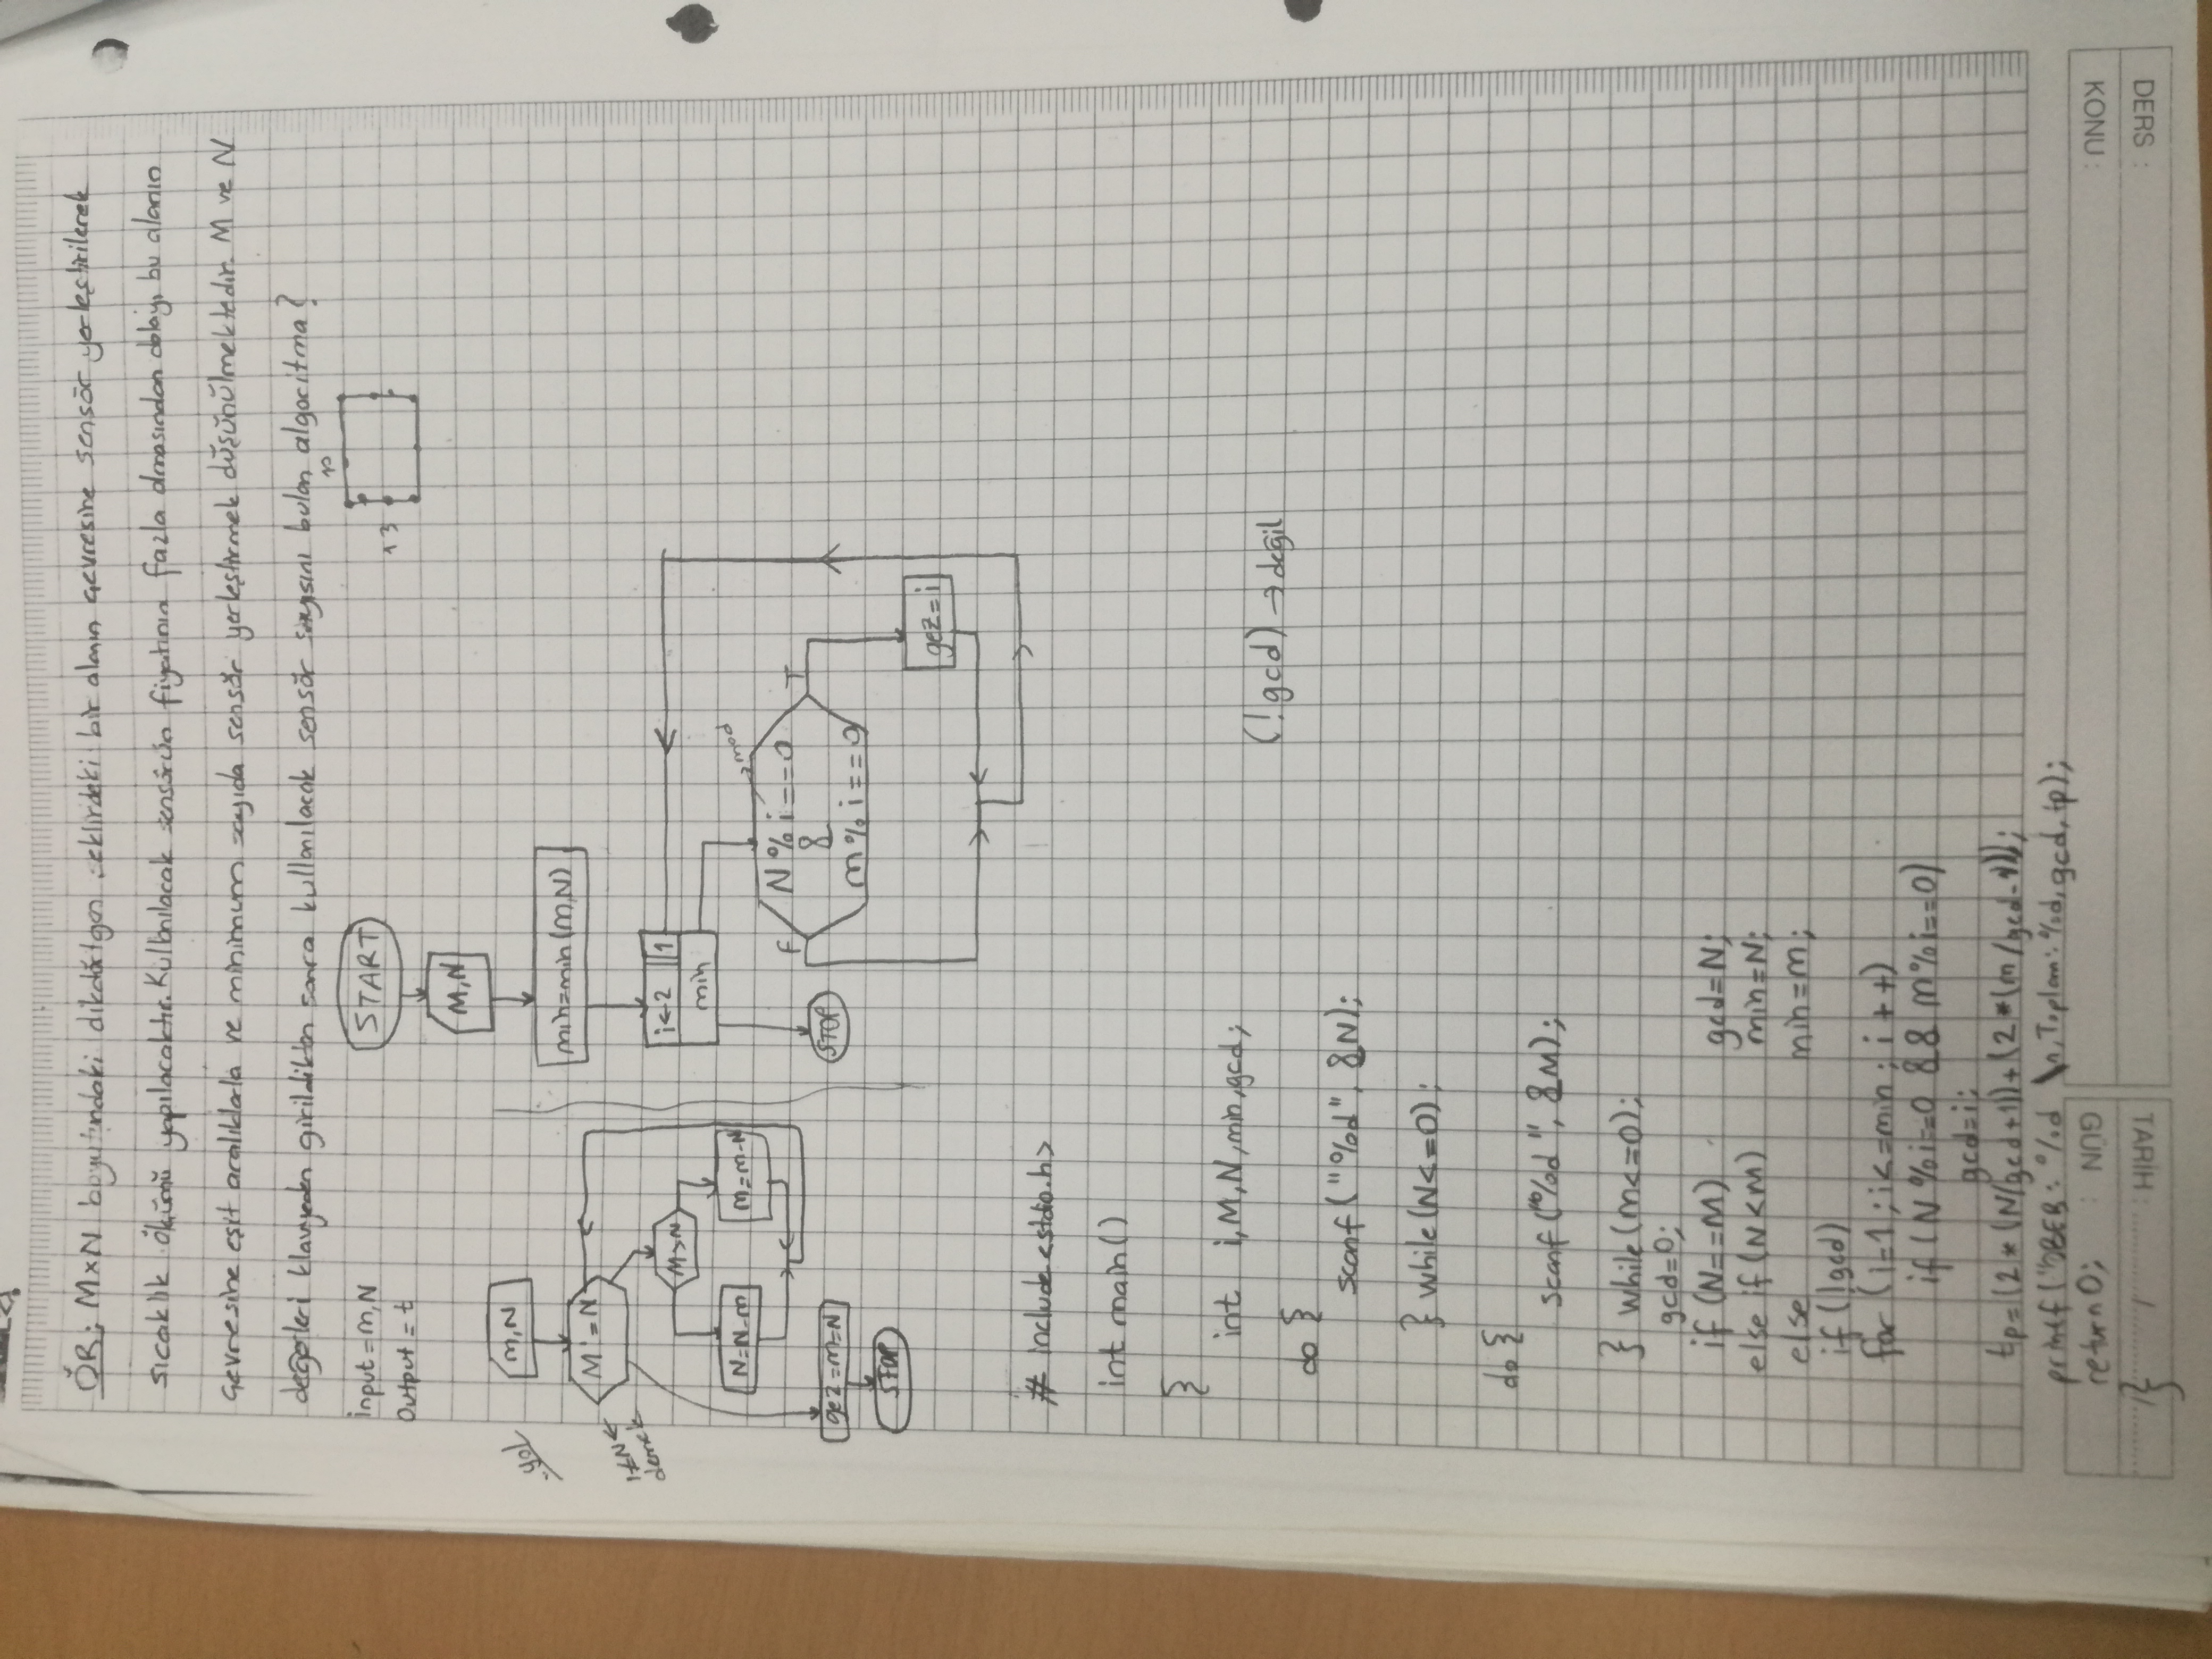 ÖR: MxN boyutundaki dikdörtgen şeklindeki bir alanın çevresine sensör yerleştirilerek
sıcaklık ölçümü yapılacaktır. Kullanılacak sensörün fiyatının fazla olmasından dolayı bu alanın
çevresine eşit aralıklarla ve minimum sayıda sensör yerleştirmek düşünülmektedir. M ve N
değerleri klavyeden girildikten sonra kullanılacak sensör sayısını bulan algoritma?
input = m,N
Output = t
START
13
M,N
yol
m,N
min=min(m,N)
M != N
demek
i←2 1
min
M>N
N=N-m
m=m-N
mod
F
N%i==0
&
m%i==0
T
STOP
gez=m=N
STOP
gez=i
# include <stdio.h>
int main()
{
int i,M,N,min,gcd;
(!gcd) → değil
do {
scanf("%d", &N);
} while(N<=0);
do {
scanf("%d", &M);
} while(m<=0);
gcd=0;
if (N==M) gcd=N;
else if (N<M) min=N;
else min=m;
if (!gcd)
for (i=1; i<=min; i++)
if (N%i==0 && m%i==0)
gcd=i;
tp=(2*(N/gcd+1))+(2*(m/gcd-1));
printf("OBEB: %d \n,Toplam: %d, gcd, tp);
return 0;
}
GÜN :
KONU :
TARİH :
DERS :